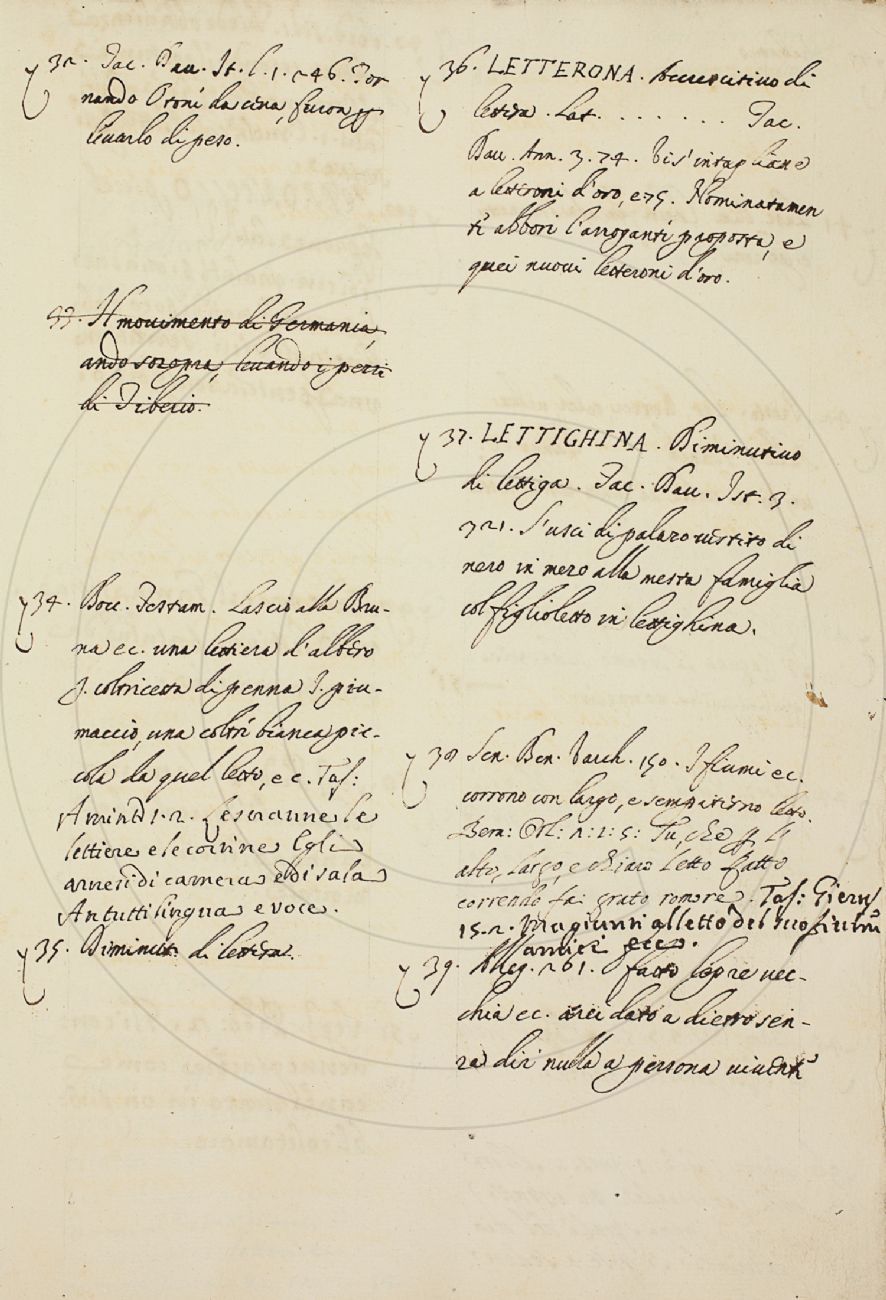 32. Tac. Dav. St. l. 1. 246. Tor
nando Otone da cena, furon per
levarlo di peso.
33. Il movimento di Germania,
ando sozopra, levando i pezzi
di Tiberio.
34. Bocc. Testam. Lascio alla Bru-
na ec. una lettiera d'albero
I. coltricetta di penna I. piu-
maccio, una coltre bianca pic-
cola da quel letto, ec. Tass:
Amint 1. 2. le scranne le
lettiere e le cortine e gli
arnesi di camera e di sala
An tutti lingua e voce.
35. Diminut. di lettera.
36. LETTERONA. Accrescitivo di
lettera. Lat. . . . . . . . Tac.
Dav. Ann. 3. 74. vi s'intagliane
a letteroni d'oro, e 75. Nominatamen
te abborì l'arrogante proposta, e
quei nuovi letteroni d'oro.
37. LETTIGHINA. Diminutivo
di lettiga. Tac. Dav. Ist. 3.
321. S'uscì di palazo vestito di
nero in mezo alla mesta famiglia
col figlioletto in lettighina.
38 Sen. Ben. Varch. 150. I fiumi ec.
corrono con largo, e sempiterno letto.
Bern: Orl: 1: 1: 5: Tu, che per li
alto, largo, e chiaro letto fatto
correndo fai grato romore. Tass: Gieru
15. 2. Ma giunti al letto del suo fiume
amici ecco.
39. Alleg. 261. fatto lepre vec-
chia ec. arei dato a dietro sen-
za dir nulla a persona vivente